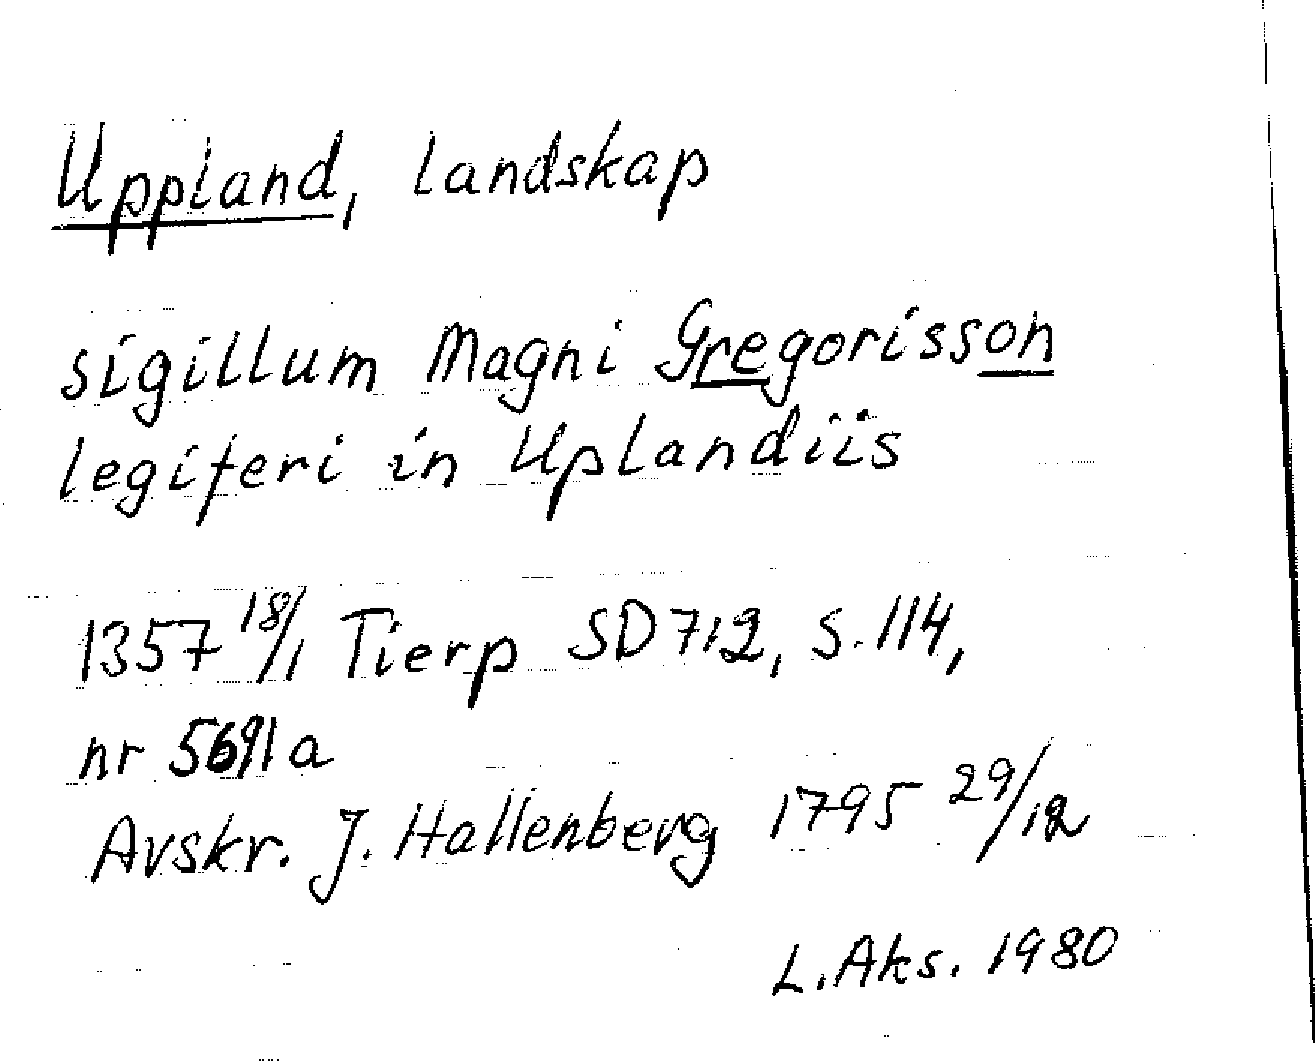 Uppland, landskap
sigillum Magni Gregorisson
legiferi in Uplandiis
1357 18/1 Tierp SD 7:2, s. 114,
nr 5691 a
Avskr. J. Hallenberg 1795 29/12
L. Aks. 1980